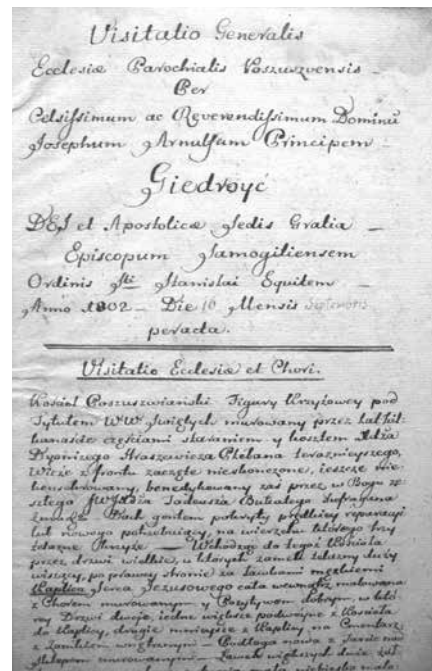 Visitatio Generalis
Ecclesiæ Parochialis Poszuszvensis
Per
Celsissimum ac Reverendissimum Dominũ
Josephum Arnulfum Principem
Giedroyć
DEI et Apostolicæ Sedis Gratia
Episcopum Samogitiensem
Ordinis Sti Stanislai Equitem
Anno 1802 Die 10 Mensis Septembris
peracta.
Visitatio Ecclesiæ et Chori.
Kościoł Poszuszwianski Figury Krzyżowey pod
Tytułem W.W. Świętych murowany przez lat kil-
kanaście częściami staraniem y kosztem
Dyonizego Straszewicza Plebana teraznieyszego,
Wieże z frontu zaczęte nieskonczone, ieszcze nie-
konsekrowany, benedykowany zaś przez w Bogu ze-
szłego Tadeusza Bukatego Suffragana
Dach gontem pokryty prędkiey reparacyi
lub nowego potrzebuiący, na wierzchu którego trzy
żelazne Krzyże — Wchodząc do tegoż Kościoła
przez drzwi wielkie, u których zamek żelazny duży
wiszący, po prawey stronie za Ławkami
Kaplica Serca Jezusowego cała wewnątrz malowana
z Chorem murowanym y Pozytywem dobrym, w któ-
rey Drzwi dwoje, iedne większe podwoyne z Kościoła
do Kaplicy, drugie mnieysze z Kaplicy na Cmentarz
z Zamkiem — Podłoga nowa z Tarcic
murowanym — Ławek większych dwie